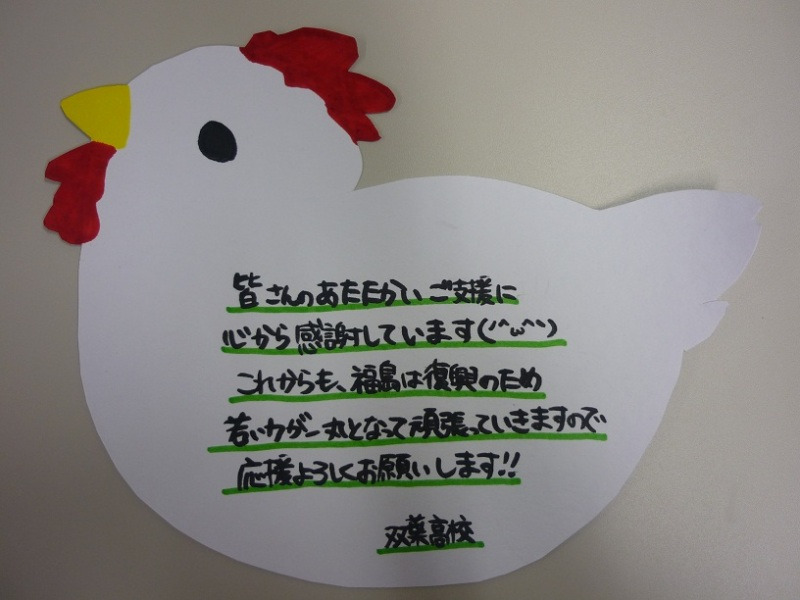 皆さんのあたたかいご支援に
心から感謝しています(´^ω^`)
これからも、福島は復興のため
若い力が一丸となって頑張っていきますので
応援よろしくお願いします!!
双葉高校